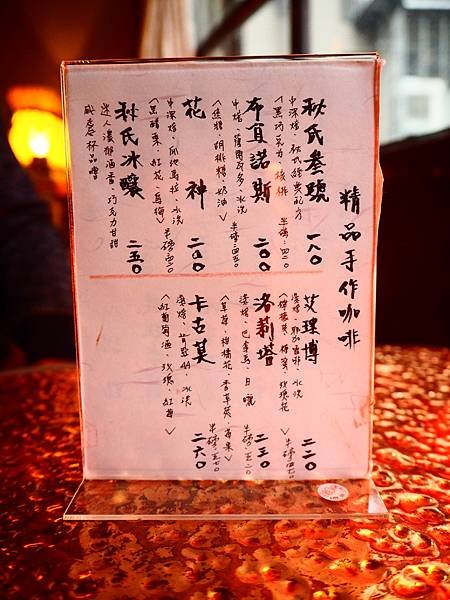 精品手作咖啡
秋氏叁號 一八〇
中深焙、秋氏經典配方
<黑巧克力、核桃> 半磅:四二〇
布宜諾斯 二〇〇
中焙、薩爾瓦多、水洗
<焦糖、胡桃糖、奶油> 半磅:四五〇
花神 二〇〇
中深焙、瓜地馬拉、水洗
<黑醋栗、紅花、烏梅> 半磅:四二〇
秋氏冰釀 二五〇
迷人濃郁酒香 巧克力甘甜
杯品嚐
艾瑞博 二二〇
淺焙、耶加雪菲、水洗
蜂蜜、玫瑰花> 半磅:四七〇
洛莉塔 二三〇
淺焙、巴拿馬、日曬
<草莓、柑橘花、香草莢、蘋果> 半磅:五二〇
卡古莫 二六〇
淺焙、肯亞、水洗
<紅葡萄酒、玫瑰、紅莓> 半磅:五七〇